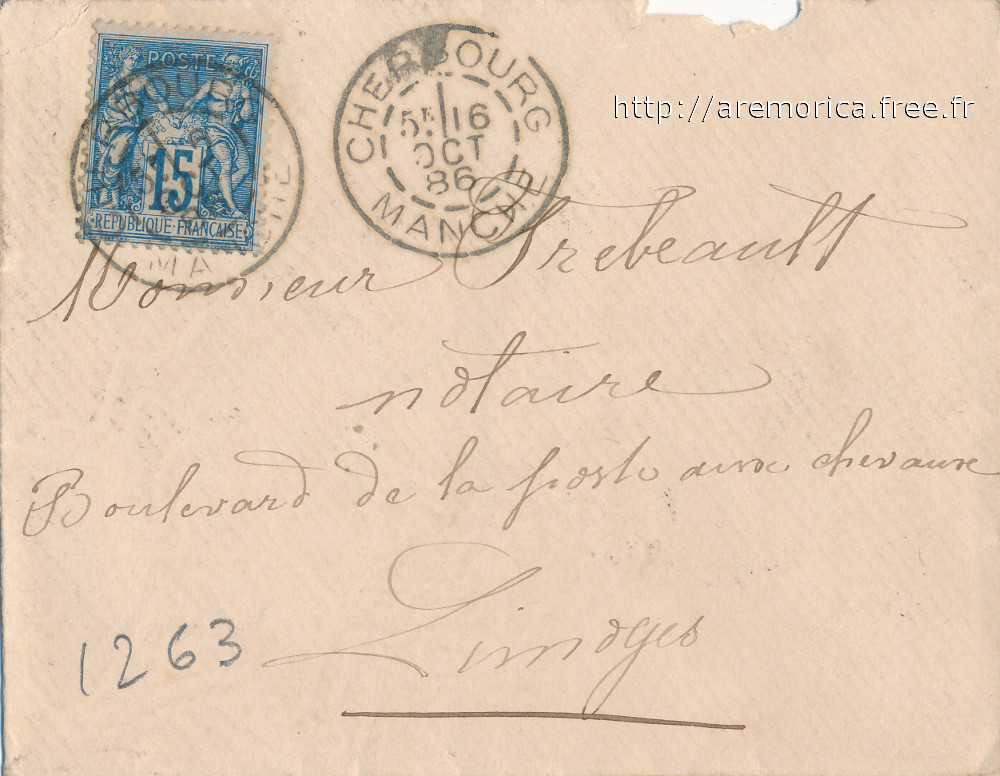 POSTE
15
RÉPUBLIQUE FRANÇAISE
MA
CHERBOURG
5E 16
OCT
86
MANCHE
http://aremorica.free.fr
Monsieur Trebeault
notaire
Boulevard de la poste aux chevaux
Limoges
1263